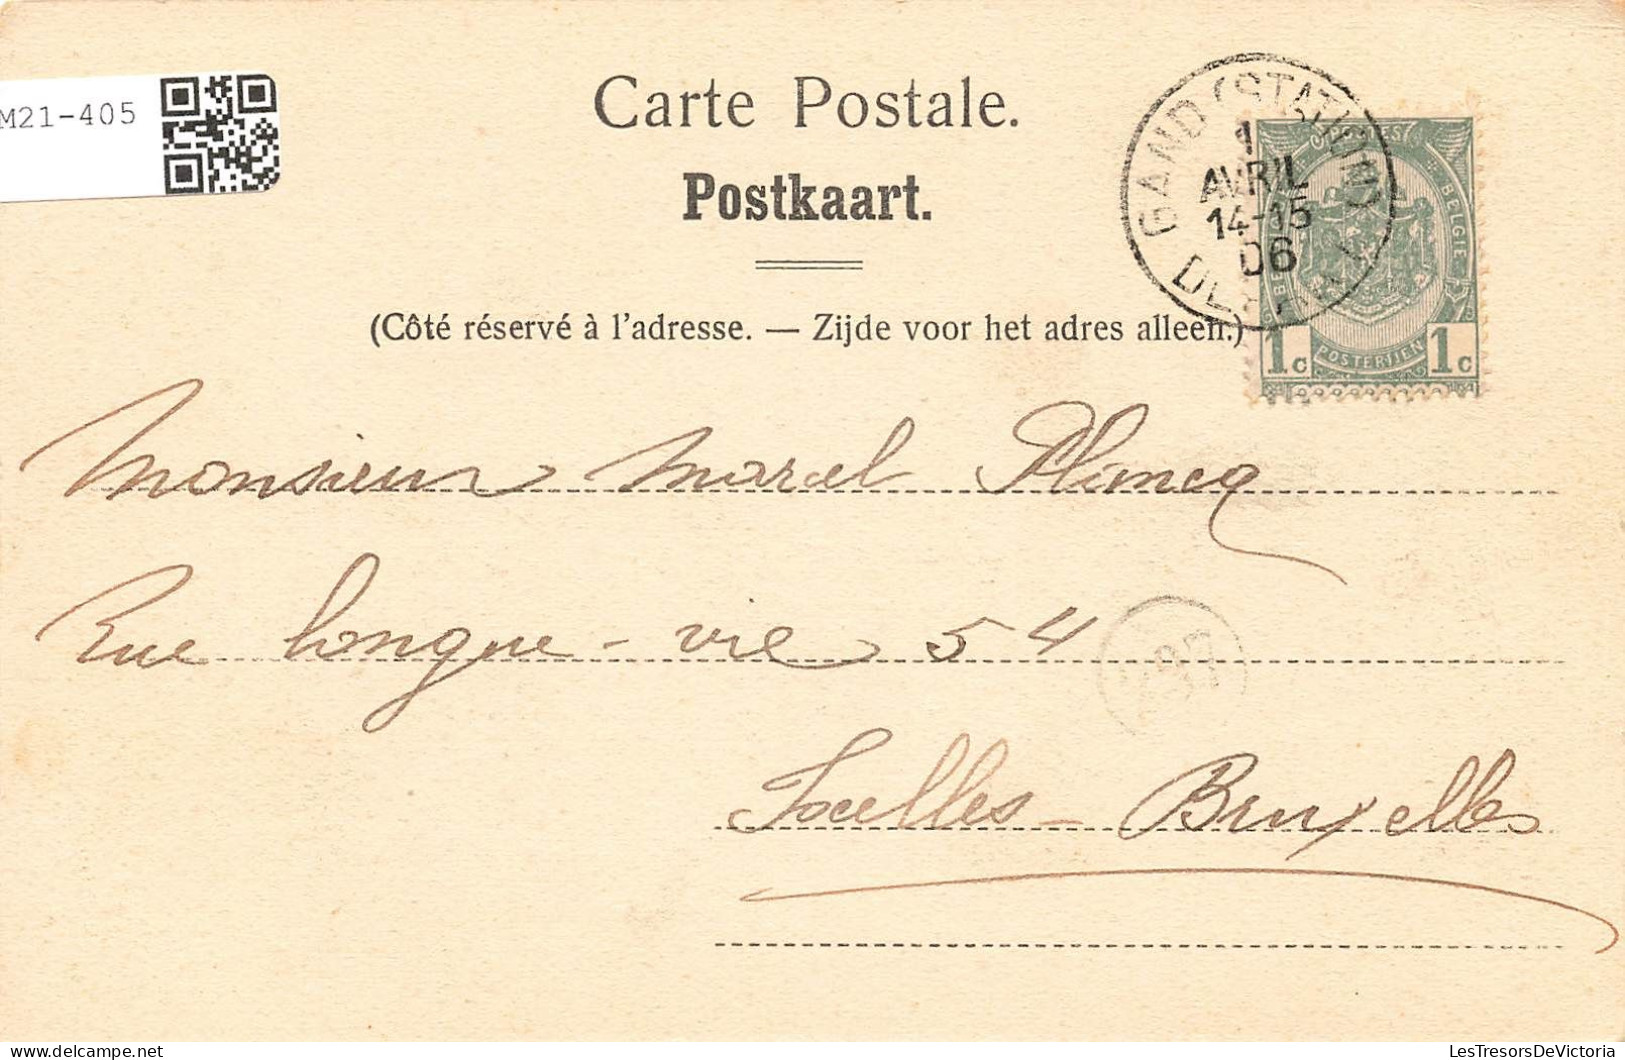 M21-405
Carte Postale.
Postkaart.
(Côté réservé à l'adresse. — Zijde voor het adres alleen.)
GAND (STATION)
1
AVRIL
14-15
06
BELGIE
1c POSTERIJEN 1c
Monsieur Marcel
Rue longue-vie 54
Ixelles - Bruxelles
LesTresorsDeVictoria